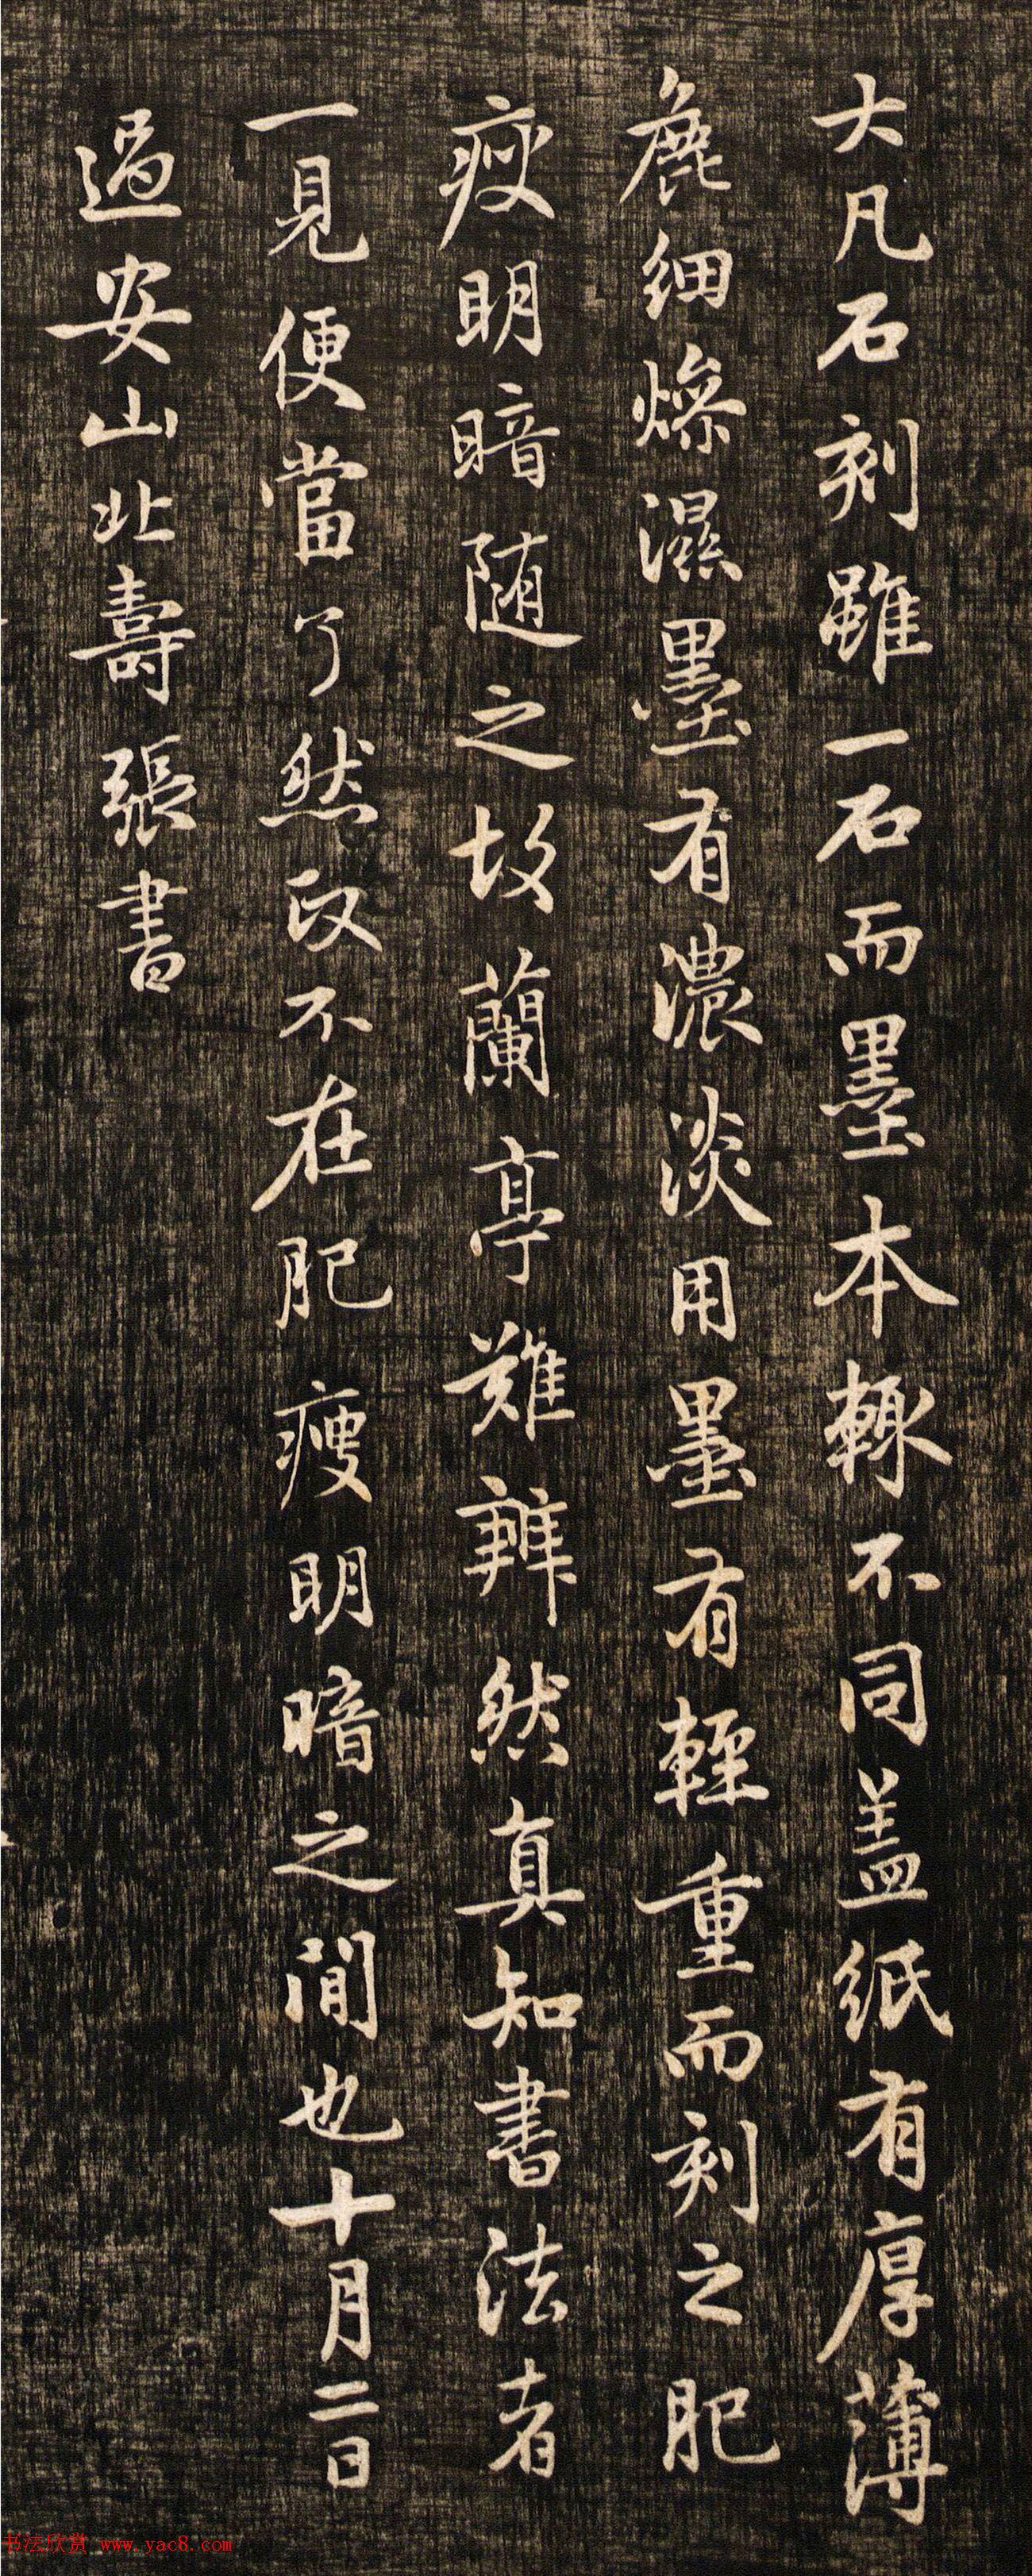 大凡石刻雖一石而墨本輙不同盖紙有厚薄
麁細燥濕墨有濃淡用墨有輕重而刻之肥
瘦明暗随之故蘭亭難辨然真知書法者
一見便當了然政不在肥瘦明暗之間也十月二日
過安山北壽張書
书法欣赏 www.yac8.com